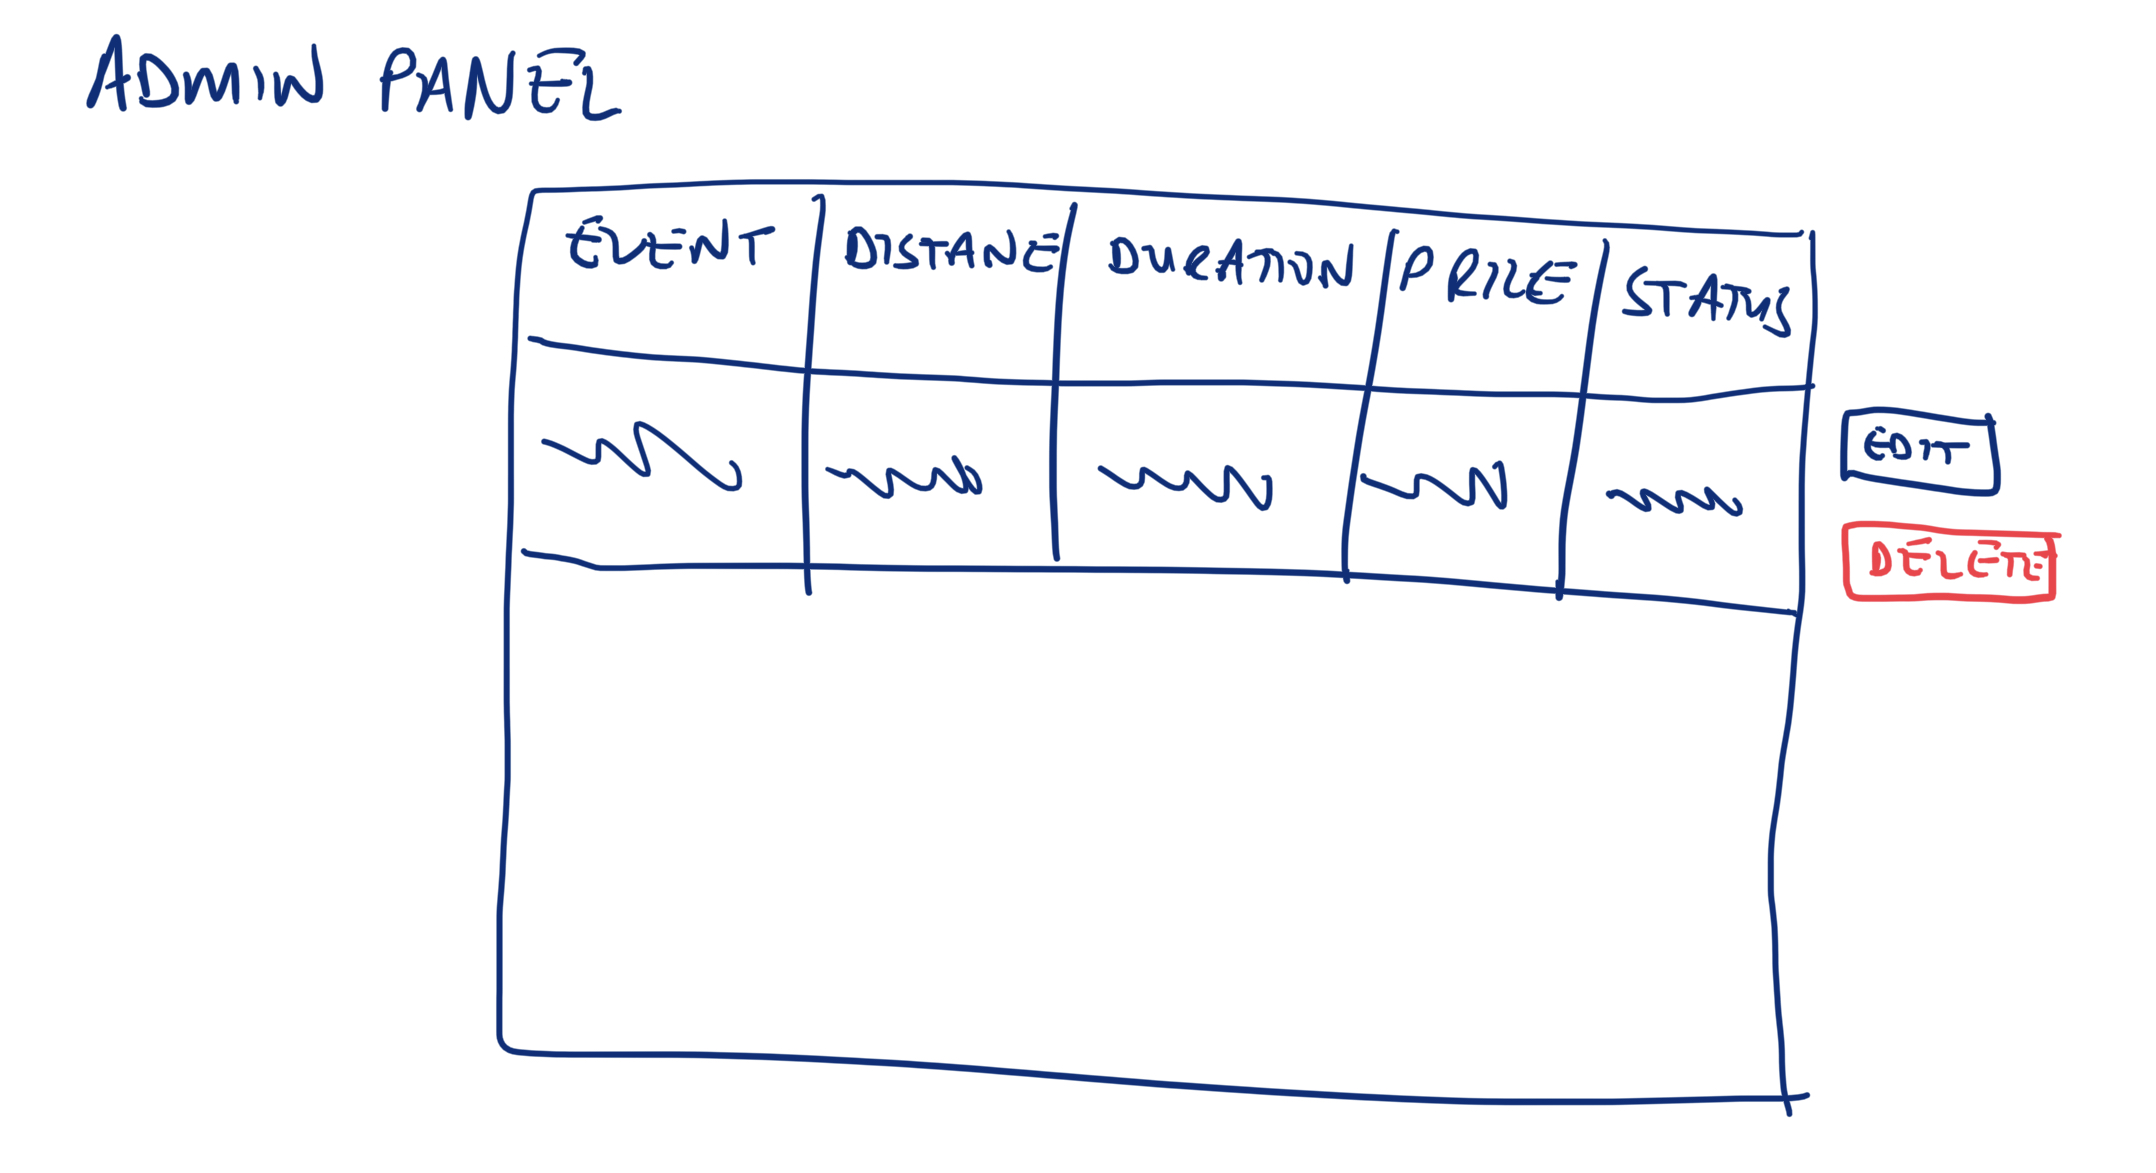 ADMIN PANEL
EVENT DISTANE DURATION PRICE STATUS
EDIT
DELETE